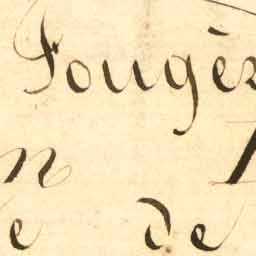 Fougèr
n
e de